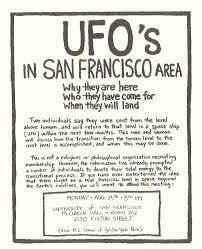 UFO's
IN SAN FRANCISCO AREA
Why they are here
Who they have come for
When they will land
Two individuals say they were sent from the level
above human, and will return to that level in a space ship
(UFO) within the next few months. This man and woman
will discuss how the transition from the human level to the
next level is accomplished, and when this may be done.
This is not a religious or philosophical organization recruiting
membership. However, the information has already prompted
a number of individuals to devote their total energy to the
transitional process. If you have ever entertained the idea
that there might be a real, physical level in space beyond
the Earth's confines, you will want to attend this meeting.
MONDAY • AUG. 25TH •
UNIVERSITY OF SAN FRANCISCO
ROOM 252
2130 FULTON STREET
(Near N.E. Corner of Golden Gate Park)